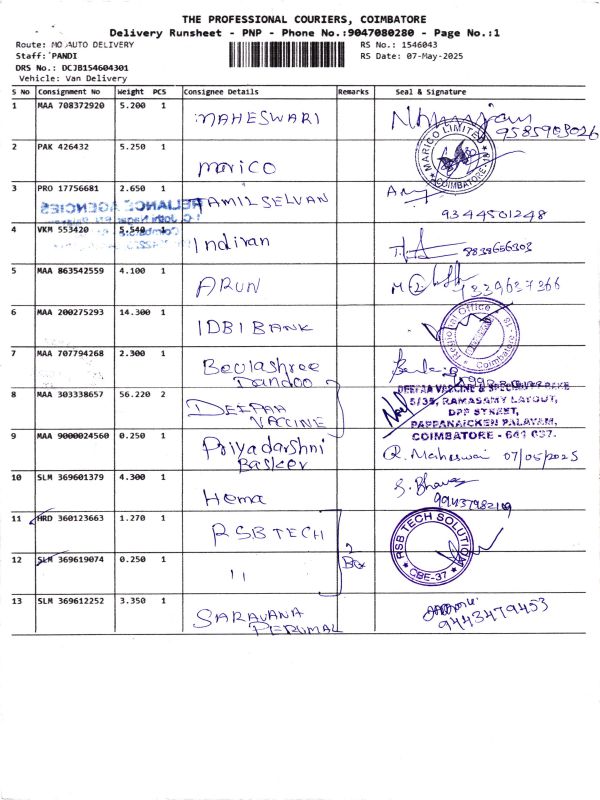 THE PROFESSIONAL COURIERS, COIMBATORE
Delivery Runsheet - PNP - Phone No.:9047080280 - Page No.:1
Route: MO AUTO DELIVERY RS No.: 1546043
Staff: PANDI RS Date: 07-May-2025
DRS No.: DCJB154604301
Vehicle: Van Delivery
S No Consignment No Weight PCS Consignee Details Remarks Seal & Signature
1 MAA 708372920 5.200 1 MAHESWARI
9585903026
2 PAK 426432 5.250 1 marico MARICO LIMITED COIMBATORE
3 PRO 17756681 2.650 1 TAMILSELVAN
9344501248
RELIANCE AGENCIES
4 VKM 553420 5.540 1 Indiran 8838656303
5 MAA 863542559 4.100 1 ARUN 9339637366
6 MAA 200275293 14.300 1 IDBI BANK Regional Office Coimbatore
7 MAA 707794268 2.300 1 Beulashree
8 MAA 303338657 56.220 2 DEEPAA VACCINE
5/39, RAMASAMY LAYOUT,
DPP STREET,
PAPPANAICKEN PALAYAM,
COIMBATORE - 641 037.
9 MAA 9000024560 0.250 1 Priyadarshni Basker R. Maheswari 07/05/2025
10 SLM 369601379 4.300 1 Hema
11 HRD 360123663 1.270 1 RSB TECH RSB TECH SOLUTION CBE-37
12 SLM 369619074 0.250 1 " 2 Box
13 SLM 369612252 3.350 1 SARAVANA PERUMAL
9443479453